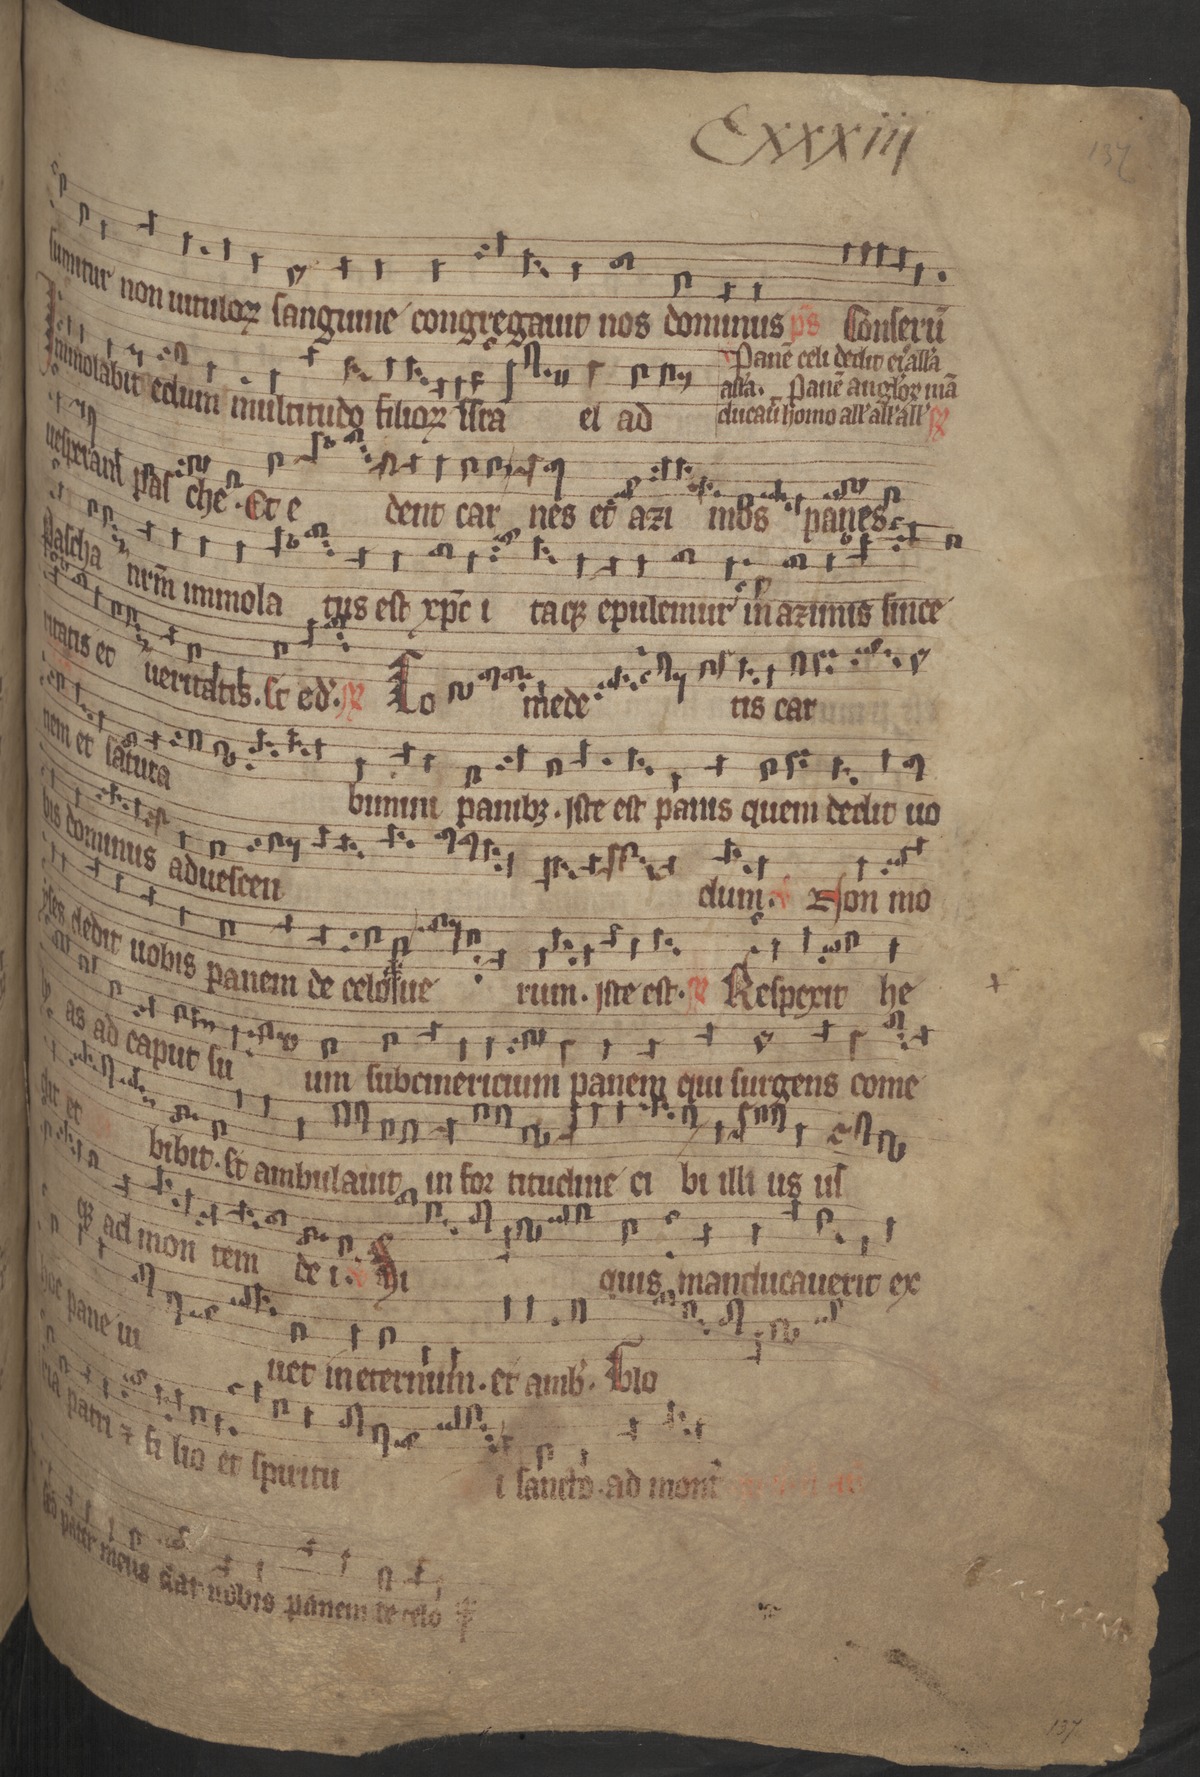 Cxxxiiij
137
sumitur non uitulorꝫ sanguine congregauit nos dominus ps Conseru̅
v Pane̅ celi dedit eis all'a
all'a. Pane̅ anglorꝫ ma̅
ducau̅ homo all' all' all' ꝶ
Immolabit edum multitudo filiorꝫ isra el ad
uesperam pas che. Et e dent car nes et azi mos panes
Pascha nr̅m immola tus est xp̅c i taqꝫ epulemur in azimis since
ritatis et ueritatis. Et ed'. ꝶ Co mede tis car
nem et satura bimini panibꝫ. Iste est panis quem dedit uo
bis dominus aduescen dum. v Non mo
yses dedit uobis panem de celo sue rum. Iste est. ꝶ Respexit he
ly as ad caput su um subcinericium panem qui surgens come
dit et bibit. Et ambulauit in for titudine ci bi illi us us
qꝫ ad mon tem de i. v Si quis manducauerit ex
hoc pane ui uet in eternum. et amb'. Glo
ria patri ⁊ fi lio et spiritu i sancto. ad mont̅
sed pater meus dat uobis panem de celo
137